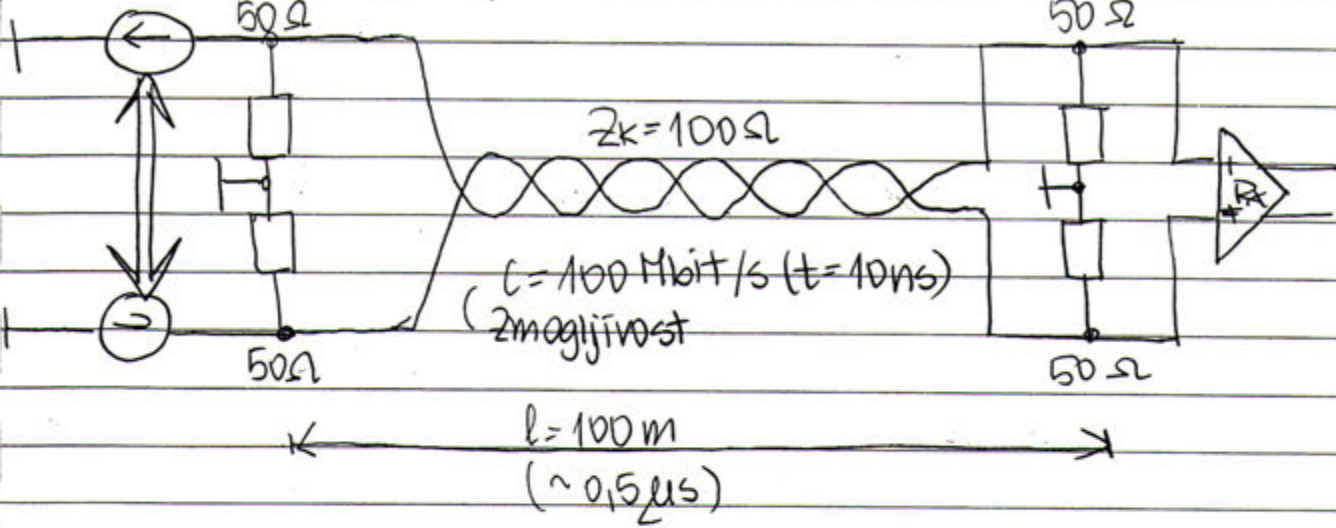 50Ω
50Ω
Zk=100Ω
Rx
C=100 Mbit/s (t=10ns)
(zmogljivost
50Ω
50Ω
l=100m
(~0,5μs)